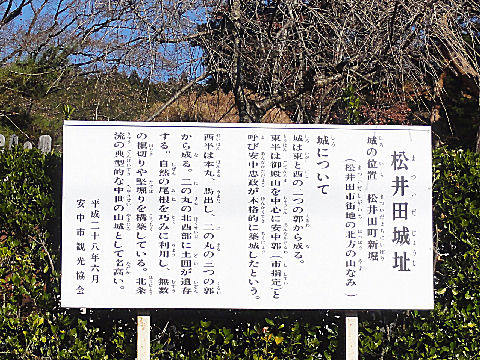 松井田城址
まついだじょうし
城の位置　松井田町新堀
（松井田市街地の北方の山なみ）
城について
城は東と西の二つの郭から成る。
東半は御殿山を中心に安中郭（市指定）と
呼び安中忠政が本格的に築城したという。
西半は本丸、馬出し、二の丸の三つの郭
から成る。二の丸の北西部に土囲が遺存
する。自然の尾根を巧みに利用し、無数
の堀切りや竪堀りを構築している。北条
流の典型的な中世の山城として名高い。
平成二十八年六月
安中市観光協会